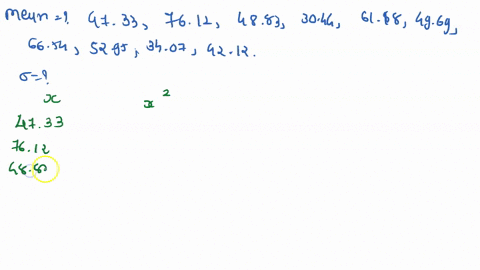 mean =? 47.33, 76.12, 48.83, 30.44, 61.88, 49.69,
66.54, 52.95, 34.07, 42.12.
σ=?
x x²
47.33
76.12
48.8